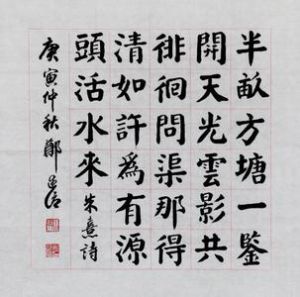 半畝方塘一鑒
開天光雲影共
徘徊問渠那得
清如許為有源
頭活水來 朱熹詩
庚寅仲秋鄭